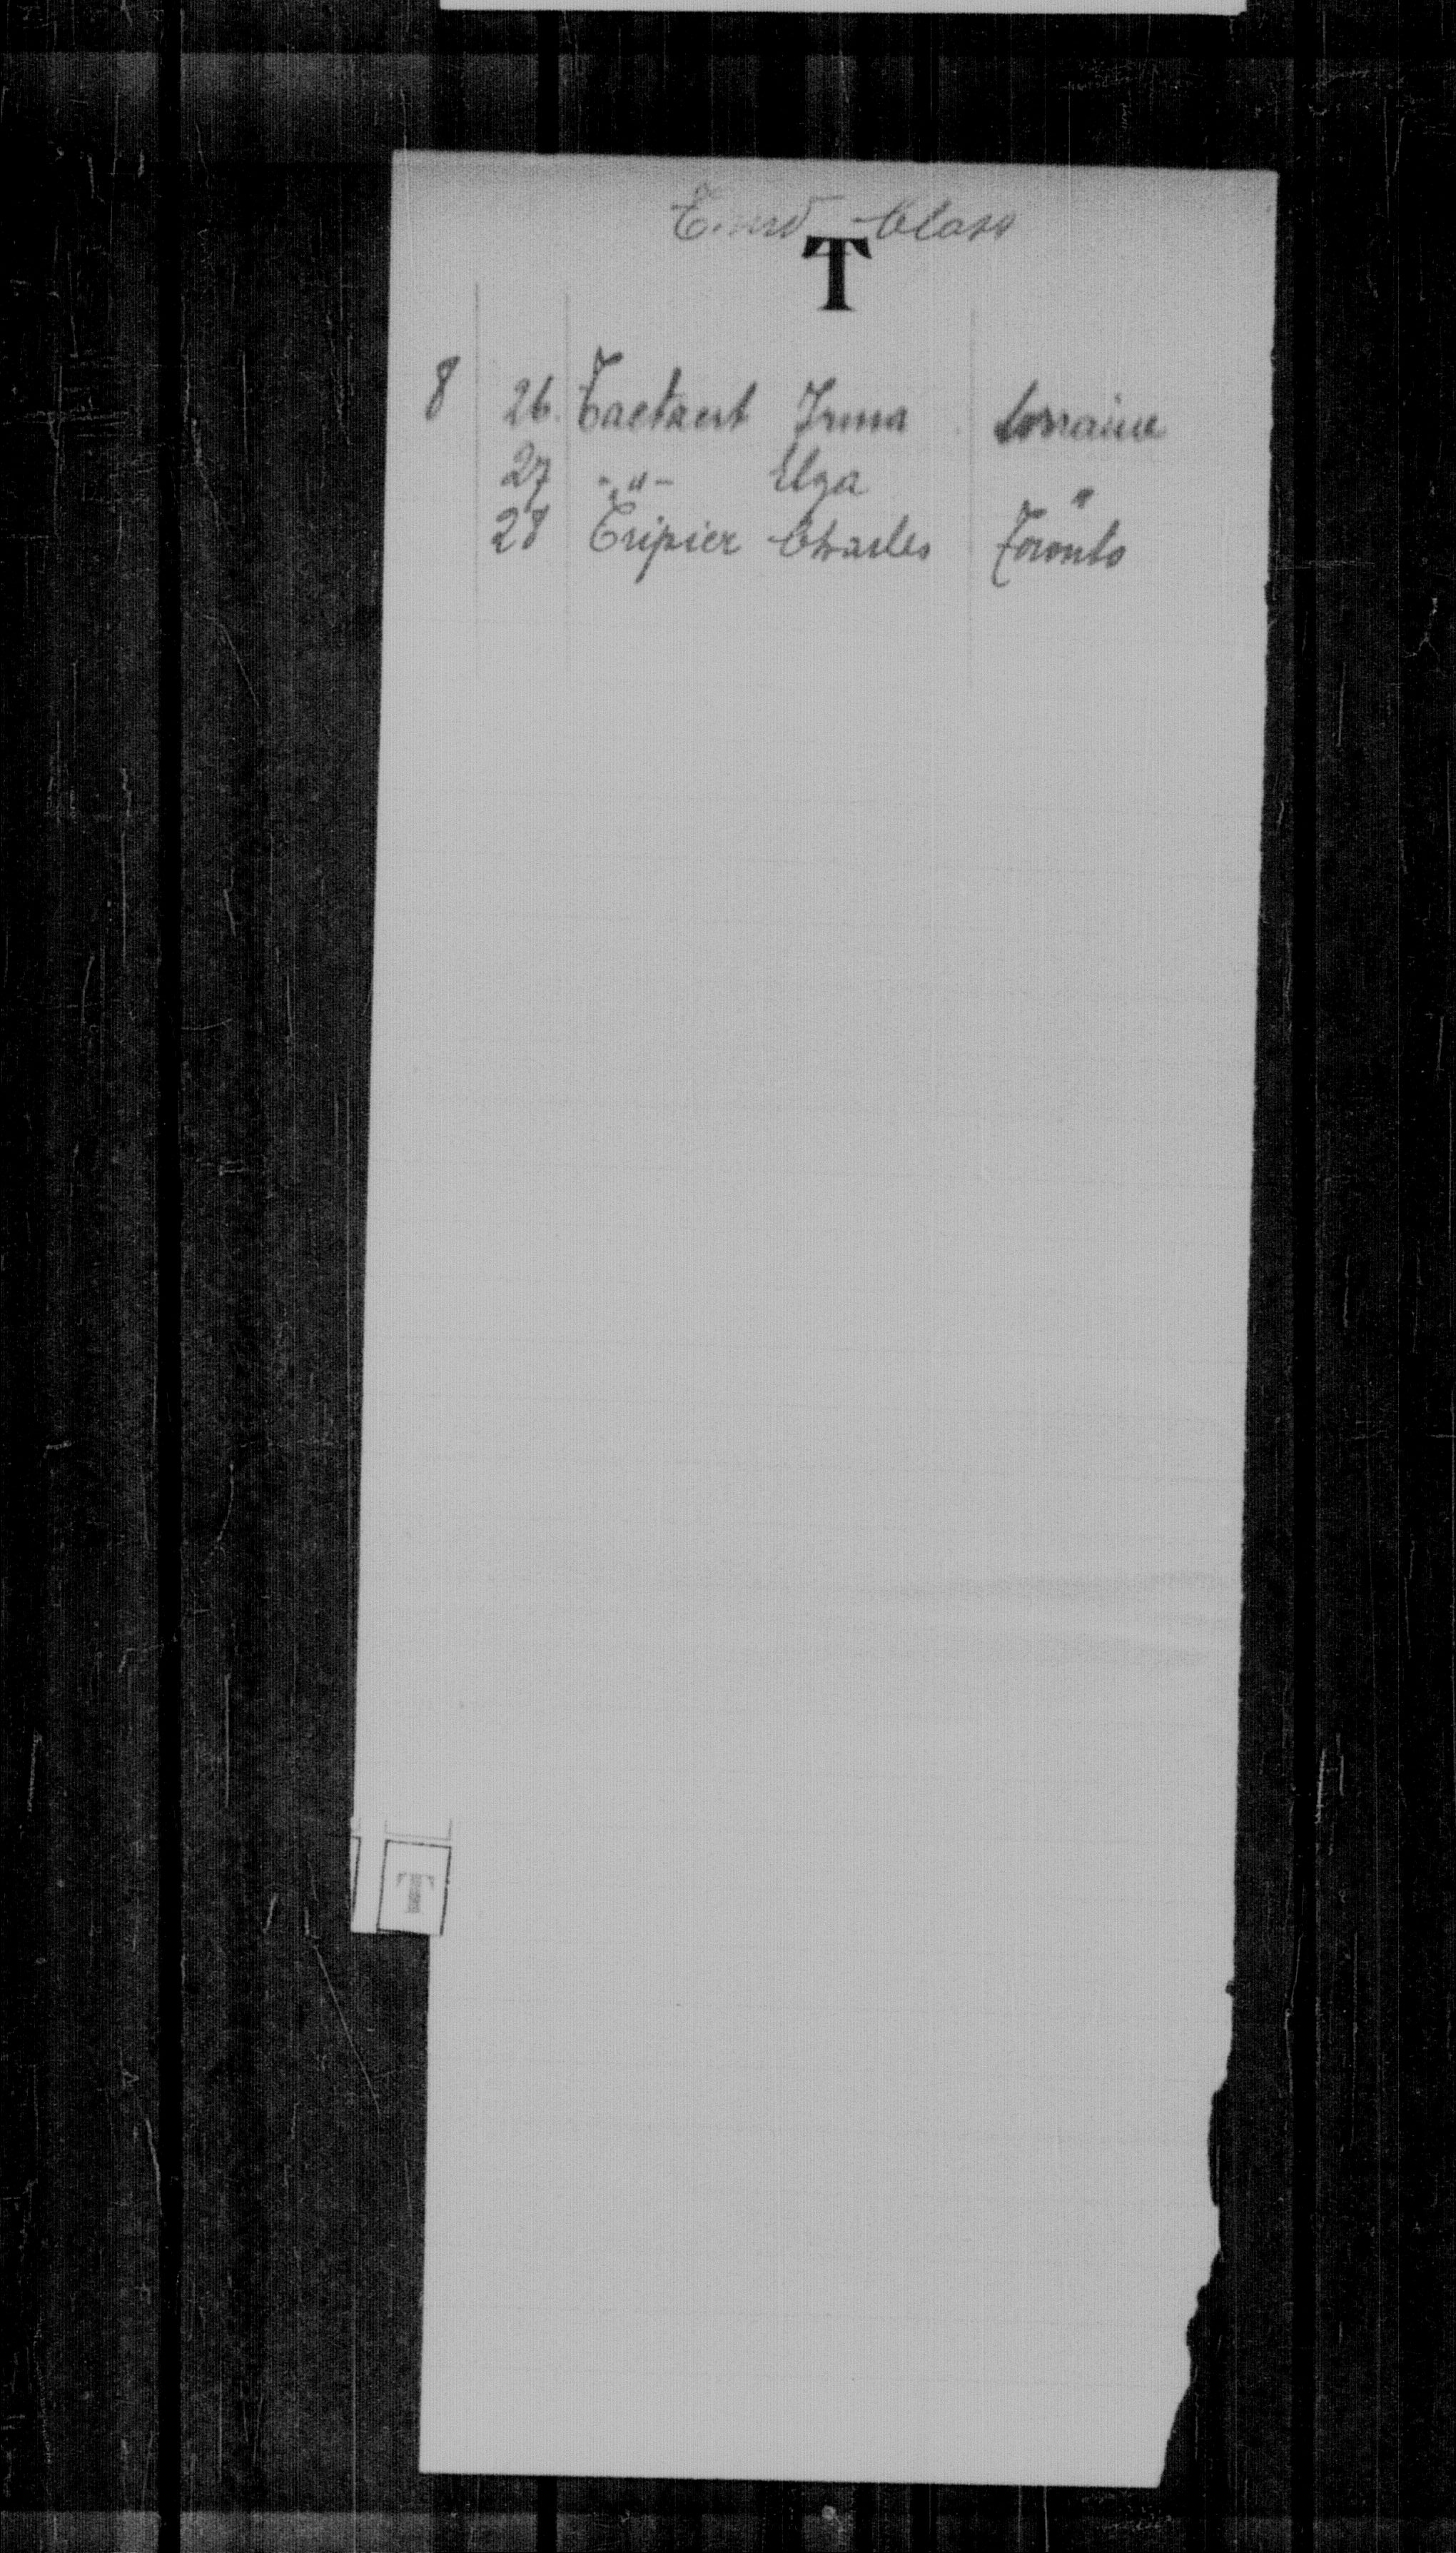 Class
T
8 26. Taetaert Irma Lorraine
27 -"- Elza "
28 Tripier Charles Toronto
T